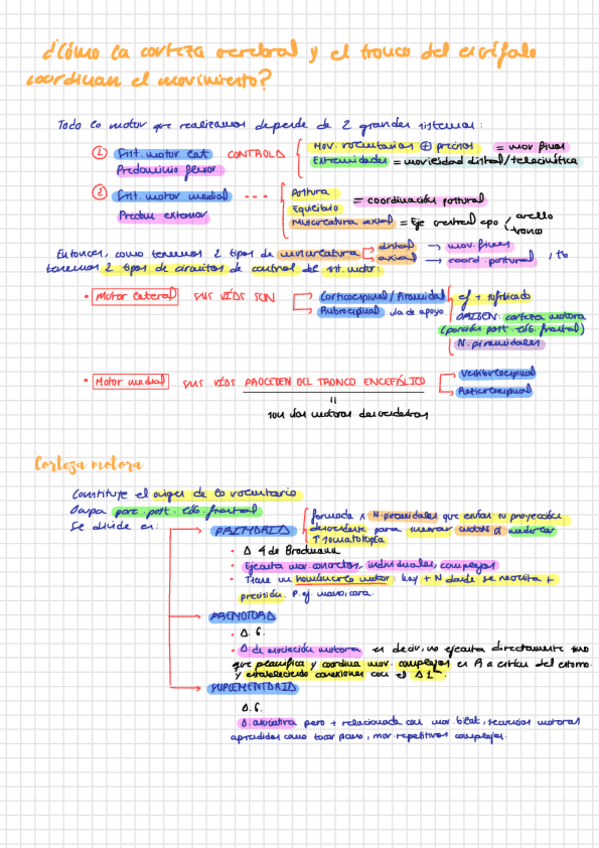 ¿Cómo la corteza cerebral y el tronco del encéfalo
coordinan el movimiento?
Todo lo motor que realizamos depende de 2 grandes sistemas:
① Sist. motor lat CONTROLA
Predominio flexor
Mov. voluntarios ⊕ precisos = mov finos
Extremidades = movilidad distal/telecinética
② Sist. motor medial ...
Predom extensor
Postura
Equilibrio = coordinación postural
Musculatura axial = Eje central cpo
cuello
tronco
Entonces, como tenemos 2 tipos de musculatura
distal → mov. finos
axial → coord. postural, tb
tenemos 2 tipos de circuitos de control del sist. motor:
• Motor lateral SUS VÍAS SON
Corticoespinal / Piramidal
Rubroespinal vía de apoyo
ef + sofisticado
ORIGEN: corteza motora
(porción post. lób. frontal)
N. piramidales
• Motor medial SUS VÍAS PROCEDEN DEL TRONCO ENCEFÁLICO
Vestibuloespinal
Reticuloespinal
=
son vías motoras descendentes
Corteza motora
Constituye el origen de lo voluntario
Ocupa parc. post. lób. frontal
Se divide en:
PRIMARIA
formada x N. piramidales que envían su proyección
descendente para
↑ Somatotopía
• A 4 de Brodmann
• Ejecuta mov. concretos, individuales, complejos
• Tiene un homúnculo motor: hay + N donde se necesita +
precisión. P. ej. mano, cara.
PREMOTORA
• A. 6.
• A. de asociación motora es decir, no ejecuta directamente sino
que planifica y coordina mov. complejos en R a críticas del entorno
y estableciendo conexiones con el A 1ª.
SUPLEMENTARIA
A. 6.
A. asociativa pero + relacionada con mov. bilat, secuencias motoras
aprendidas como tocar piano, mov. repetitivos complejos.